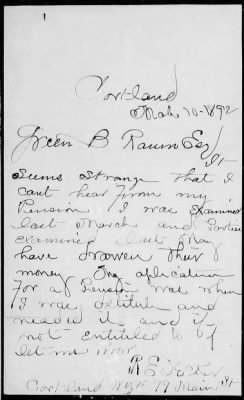 Cortland
Mch 10-1892
Green B Raum Esq
Seems strange that I
cant hear from my
Pension, I was Examined
last March and Parties
examined last May
have drawen their
money. My aplication
For a Pension was when
I was destitute and
needed it and if
not Entitled to it
let me know
R E
Cortland N.Y. 19 Main St